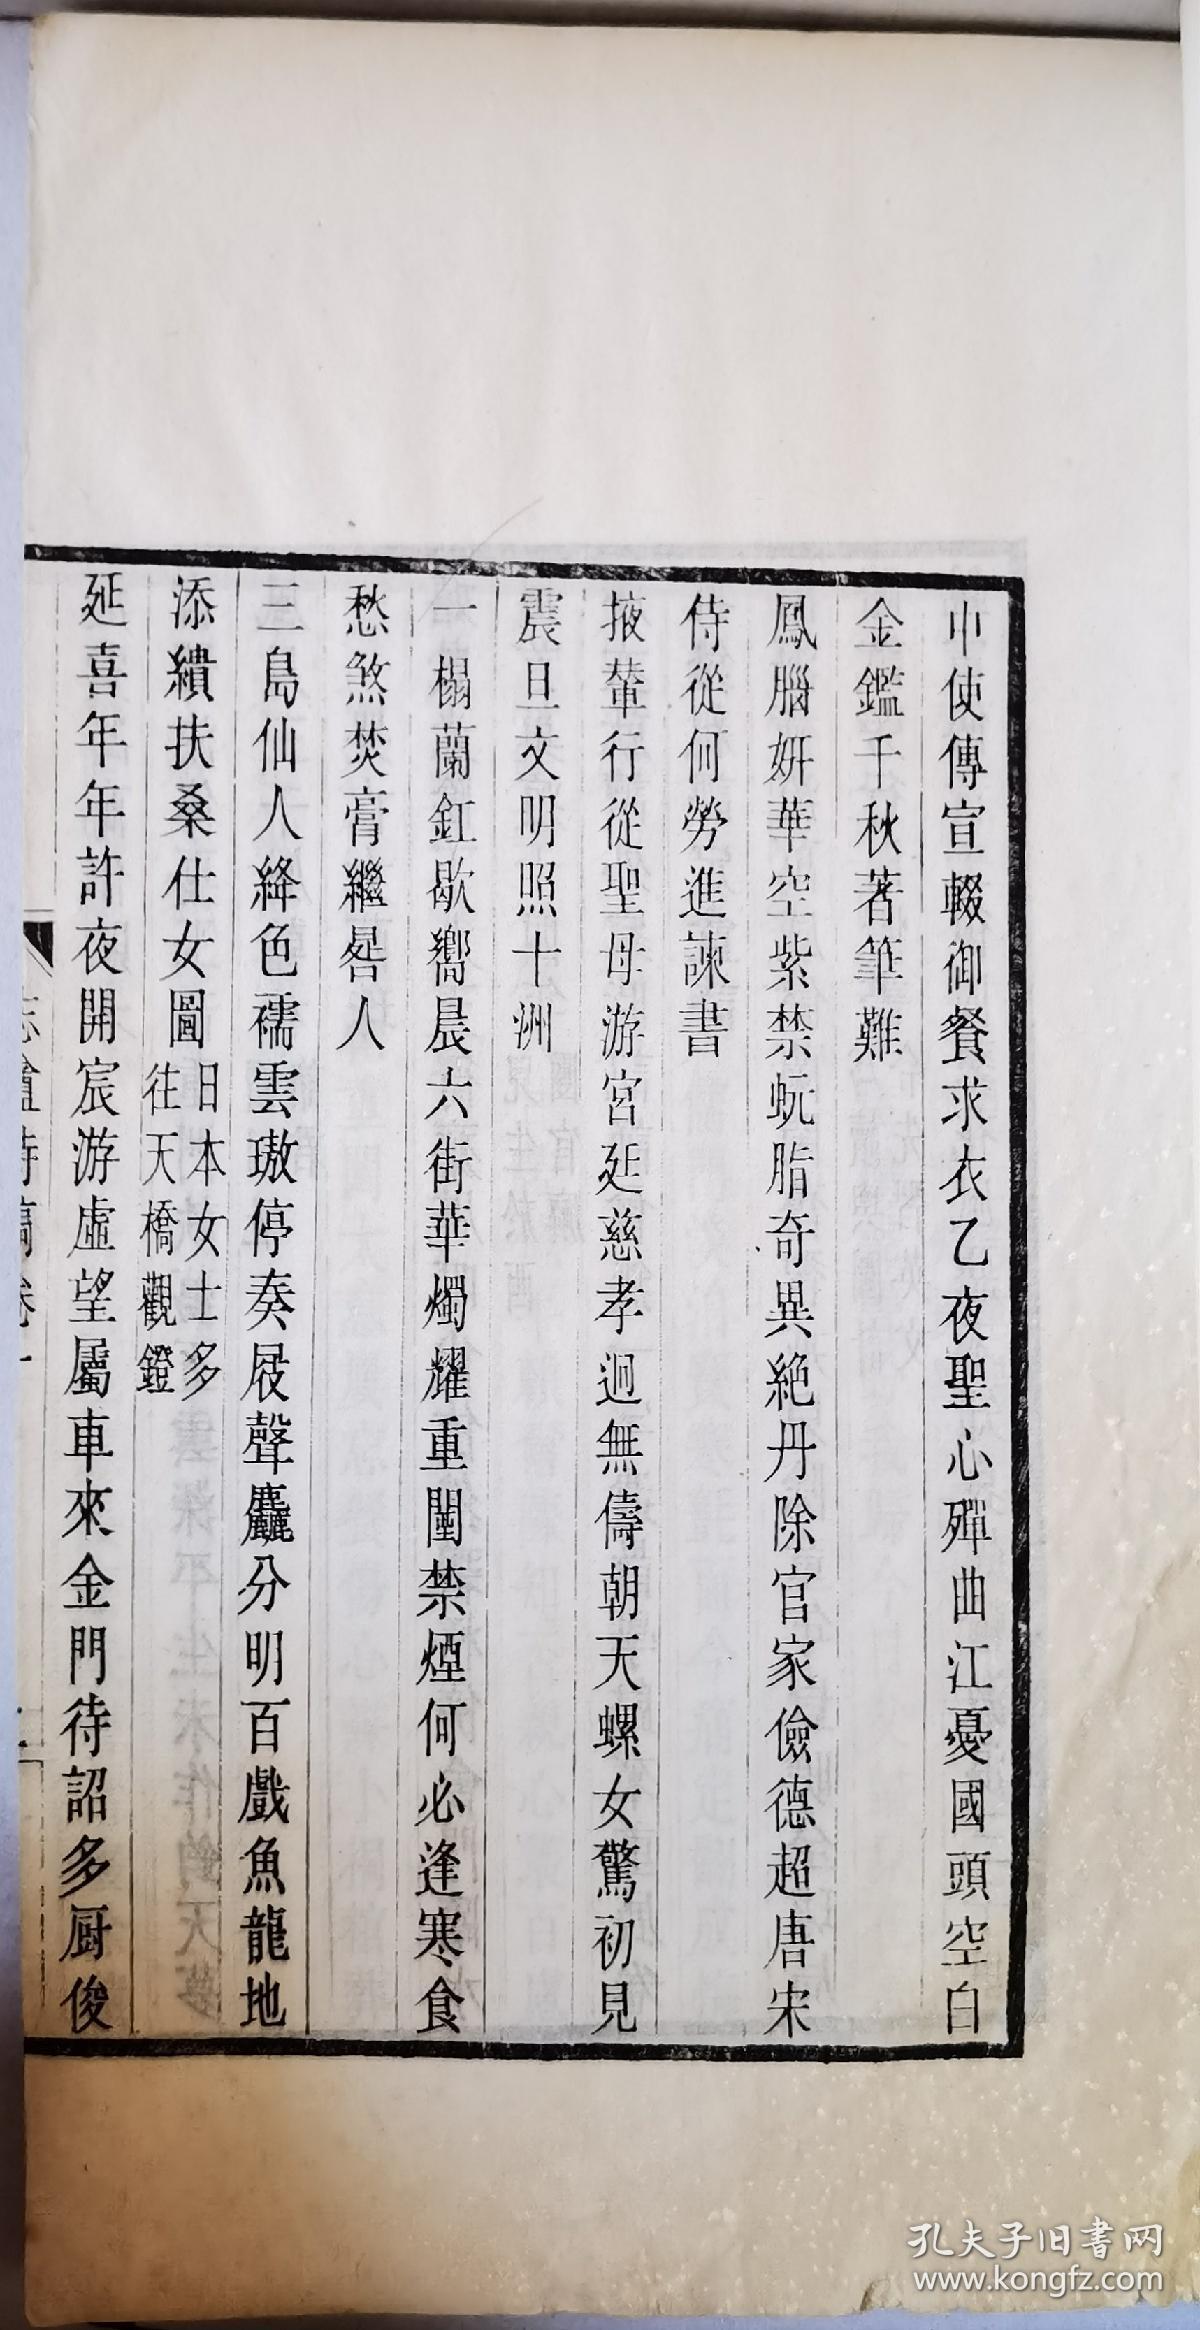 中使傳宣輟御餐求衣乙夜聖心殫曲江憂國頭空白
金鑑千秋著筆難
鳳腦妍華空紫禁蚖脂奇異絶丹除官家儉德超唐宋
侍從何勞進諫書
掖輦行從聖母游宮延慈孝迥無儔朝天螺女驚初見
震旦文明照十洲
一榻蘭釭歇嚮晨六街華燭耀重闉禁煙何必逢寒食
愁煞焚膏繼晷人
三島仙人絳色襦雲璈停奏屐聲麤分明百戲魚龍地
添繢扶桑仕女圖日本女士多
往天橋觀鐙
延喜年年許夜開宸游虛望屬車來金門待詔多厨俊
孔夫子旧书网
www.kongfz.com